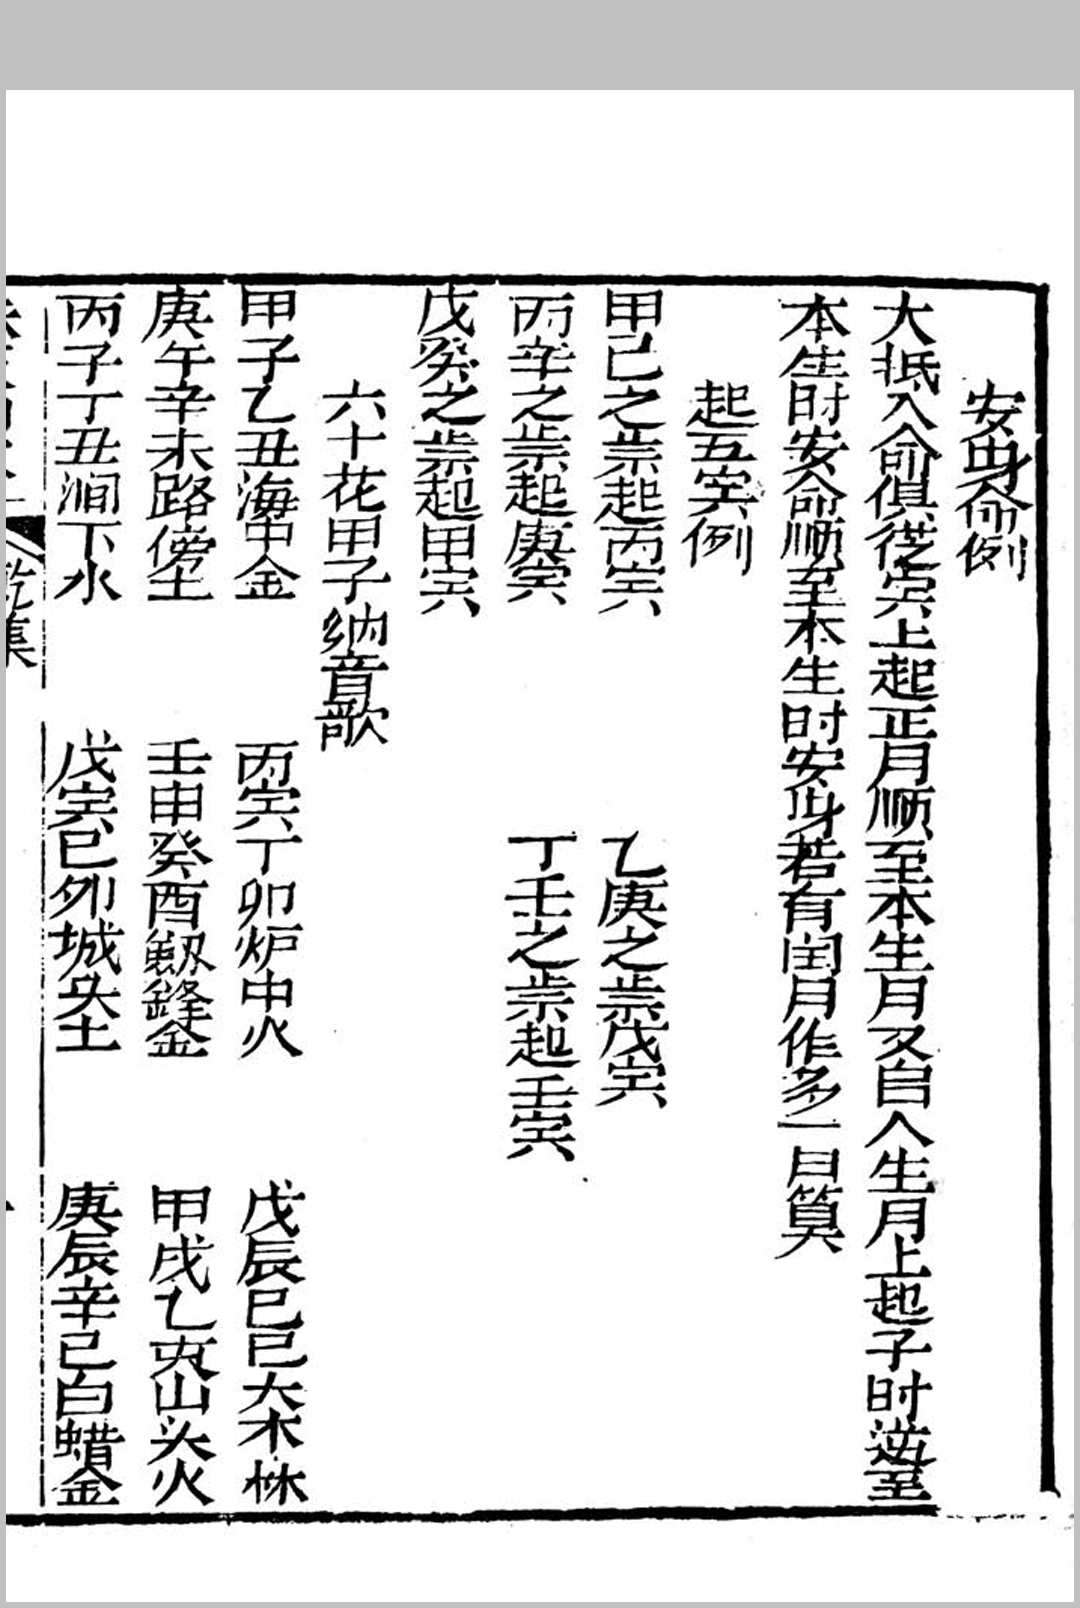 安身命例
大抵入命俱從寅上起正月順至本生月又自人生月上起子时逆至
本生时安命順至本生时安身若有闰月作多一日算
起五寅例
甲己之歲起丙寅 乙庚之歲戊寅
丙辛之歲起庚寅 丁壬之歲起壬寅
戊癸之歲起甲寅
六十花甲子纳音歌
甲子乙丑海中金 丙寅丁卯炉中火 戊辰巳巳大木林
庚午辛未路傍土 壬申癸酉劔鋒金 甲戌乙亥山头火
丙子丁丑澗下水 戊寅巳卯城头土 庚辰辛巳白蜡金
乾集